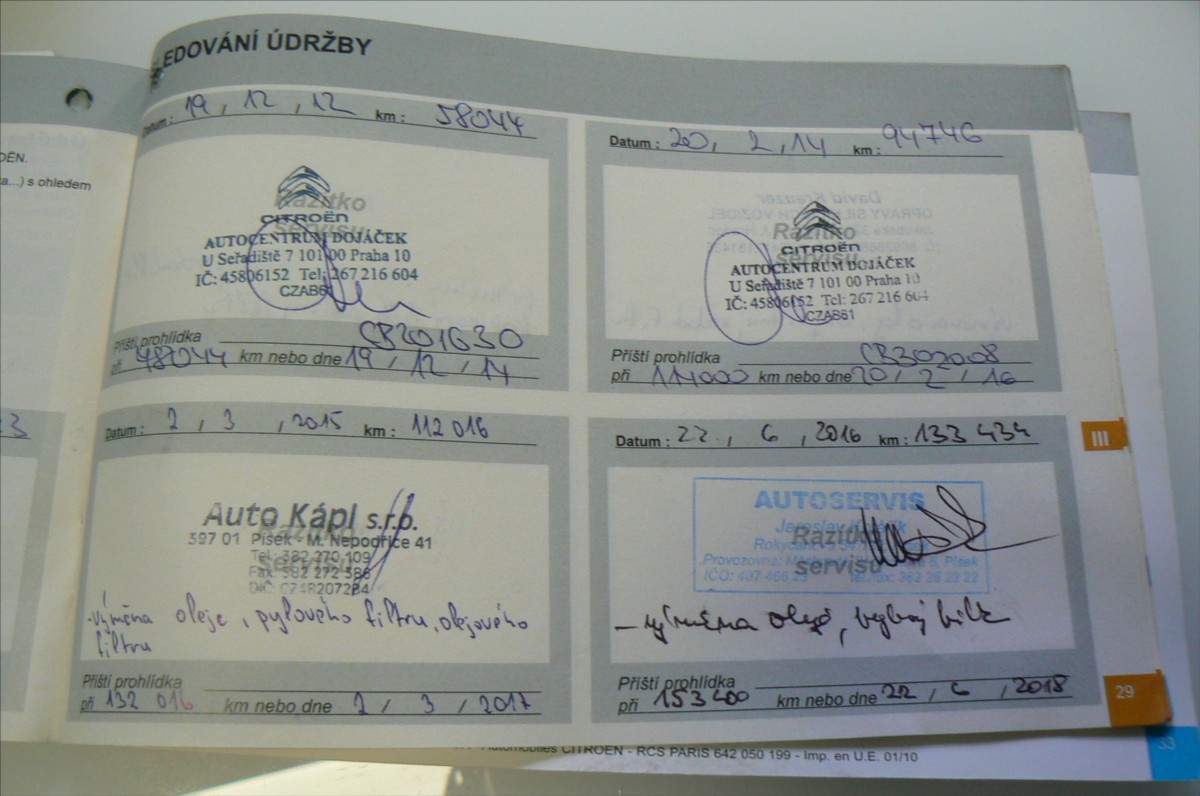 LEDOVÁNÍ ÚDRŽBY
OËN.
a...) s ohledem
Datum : 19 , 12 , 12 km : 58044
Razítko
servisu
CITROËN
AUTOCENTRUM DOJÁČEK
U Seřadiště 7 101 00 Praha 10
IČ: 45806152 Tel: 267 216 604
CZAB61
Příští prohlídka CB201630
při 48044 km nebo dne 19 / 12 / 14
Datum : 20 , 2 , 14 km : 94746
Razítko
servisu
CITROËN
AUTOCENTRUM DOJÁČEK
U Seřadiště 7 101 00 Praha 10
IČ: 45806152 Tel: 267 216 604
CZAB61
Příští prohlídka CB302008
při 114000 km nebo dne 20 / 2 / 16
Datum : 2 , 3 , 2015 km : 112 016
Auto Kápl s.r.o.
397 01 Písek - M. Nepodřice 41
Razítko
servisu
Tel.: 382 270 109
Fax: 382 272 386
DIČ: CZ48207284
- výměna oleje, pylového filtru, olejového
filtru
Příští prohlídka
při 132 016 km nebo dne 2 / 3 / 2017
Datum : 22 , 6 , 2016 km : 133 434
AUTOSERVIS
Jaroslav
Razítko
servisu
Provozovna: Písek
IČO: 407 466 23 tel./fax: 382 26 22 22
- výměna oleje,
Příští prohlídka
při 153400 km nebo dne 22 / 6 , 2018
III
29
33
Automobiles CITROËN - RCS PARIS 642 050 199 - Imp. en U.E. 01/10